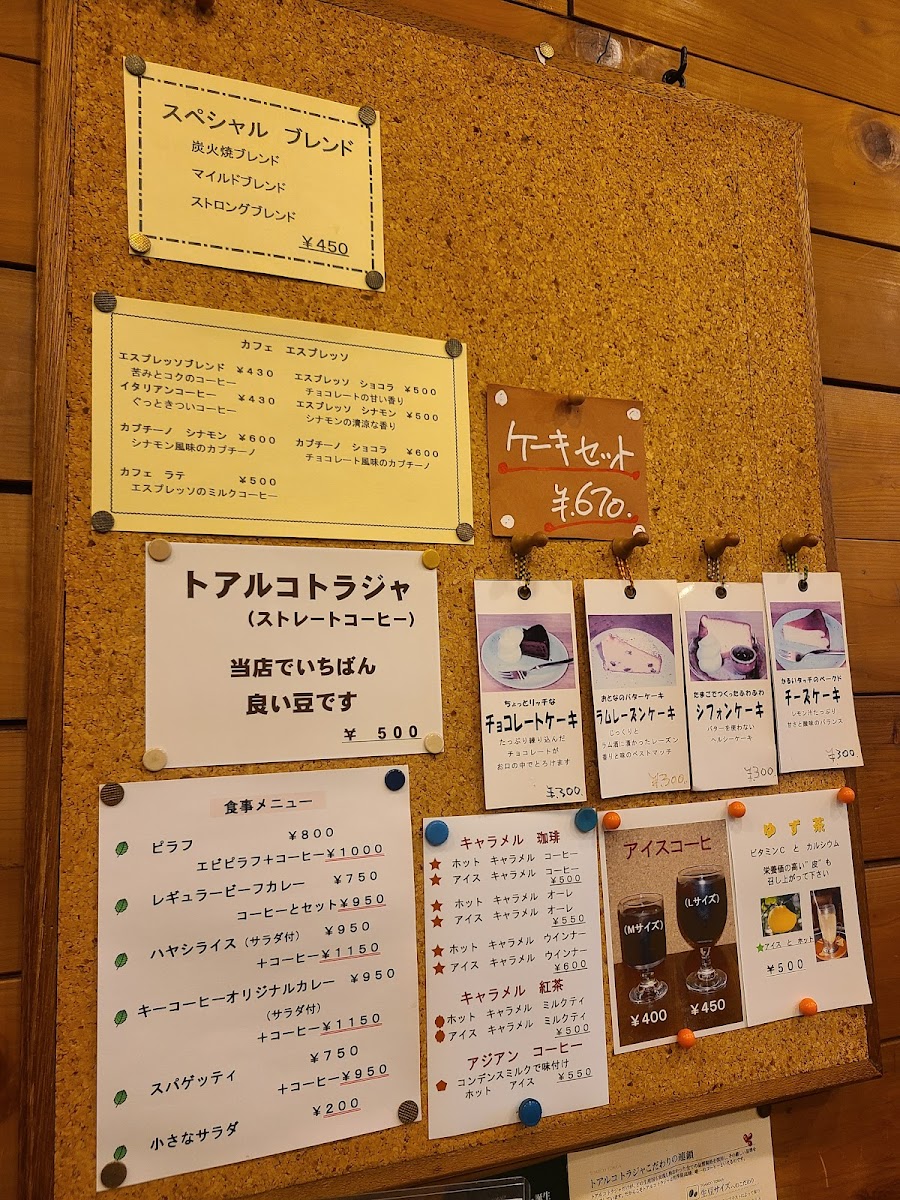 スペシャル ブレンド
炭火焼ブレンド
マイルドブレンド
ストロングブレンド
￥450
カフェ エスプレッソ
エスプレッソブレンド ￥430
苦みとコクのコーヒー
イタリアンコーヒー ￥430
ぐっときついコーヒー
カプチーノ シナモン ￥600
シナモン風味のカプチーノ
カフェ ラテ ￥500
エスプレッソのミルクコーヒー
エスプレッソ ショコラ ￥500
チョコレートの甘い香り
エスプレッソ シナモン ￥500
シナモンの清涼な香り
カプチーノ ショコラ ￥600
チョコレート風味のカプチーノ
ケーキセット
¥.670.
トアルコトラジャ
(ストレートコーヒー)
当店でいちばん
良い豆です
￥ 500
ちょっとリッチな
チョコレートケーキ
たっぷり練り込んだ
チョコレートが
お口の中でとろけます
¥.300.
おとなのバターケーキ
ラムレーズンケーキ
じっくりと
ラム酒に漬かったレーズン
香りと味のベストマッチ
¥.300.
たまごでつくったふわふわ
シフォンケーキ
バターを使わない
ヘルシーケーキ
¥300.
かるいタッチのベークド
チーズケーキ
レモン汁たっぷり
甘さと酸味のバランス
¥300.
食事メニュー
ピラフ ￥800
エビピラフ＋コーヒー￥1000
レギュラービーフカレー ￥750
コーヒーとセット￥950
ハヤシライス（サラダ付） ￥950
＋コーヒー￥1150
キーコーヒーオリジナルカレー ￥950
（サラダ付）
＋コーヒー￥1150
スパゲッティ ￥750
＋コーヒー￥950
小さなサラダ ￥200
キャラメル 珈琲
ホット キャラメル コーヒー
アイス キャラメル コーヒー
￥500
ホット キャラメル オーレ
アイス キャラメル オーレ
￥550
ホット キャラメル ウインナー
アイス キャラメル ウインナー
￥600
キャラメル 紅茶
ホット キャラメル ミルクティ
アイス キャラメル ミルクティ
￥500
アジアン コーヒー
コンデンスミルクで味付け
ホット アイス ￥550
アイスコーヒ
(Mサイズ)
(Lサイズ)
￥400
￥450
ゆず茶
ビタミンC と カルシウム
栄養価の高い"皮"も
召し上がって下さい
アイス と ホット
￥500
トアルコ トラジャこだわりの連鎖